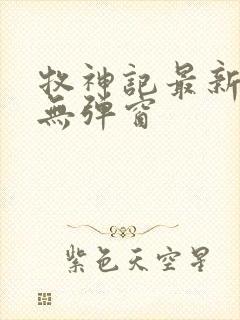 牧神記最新
無彈窗
紫色天空星